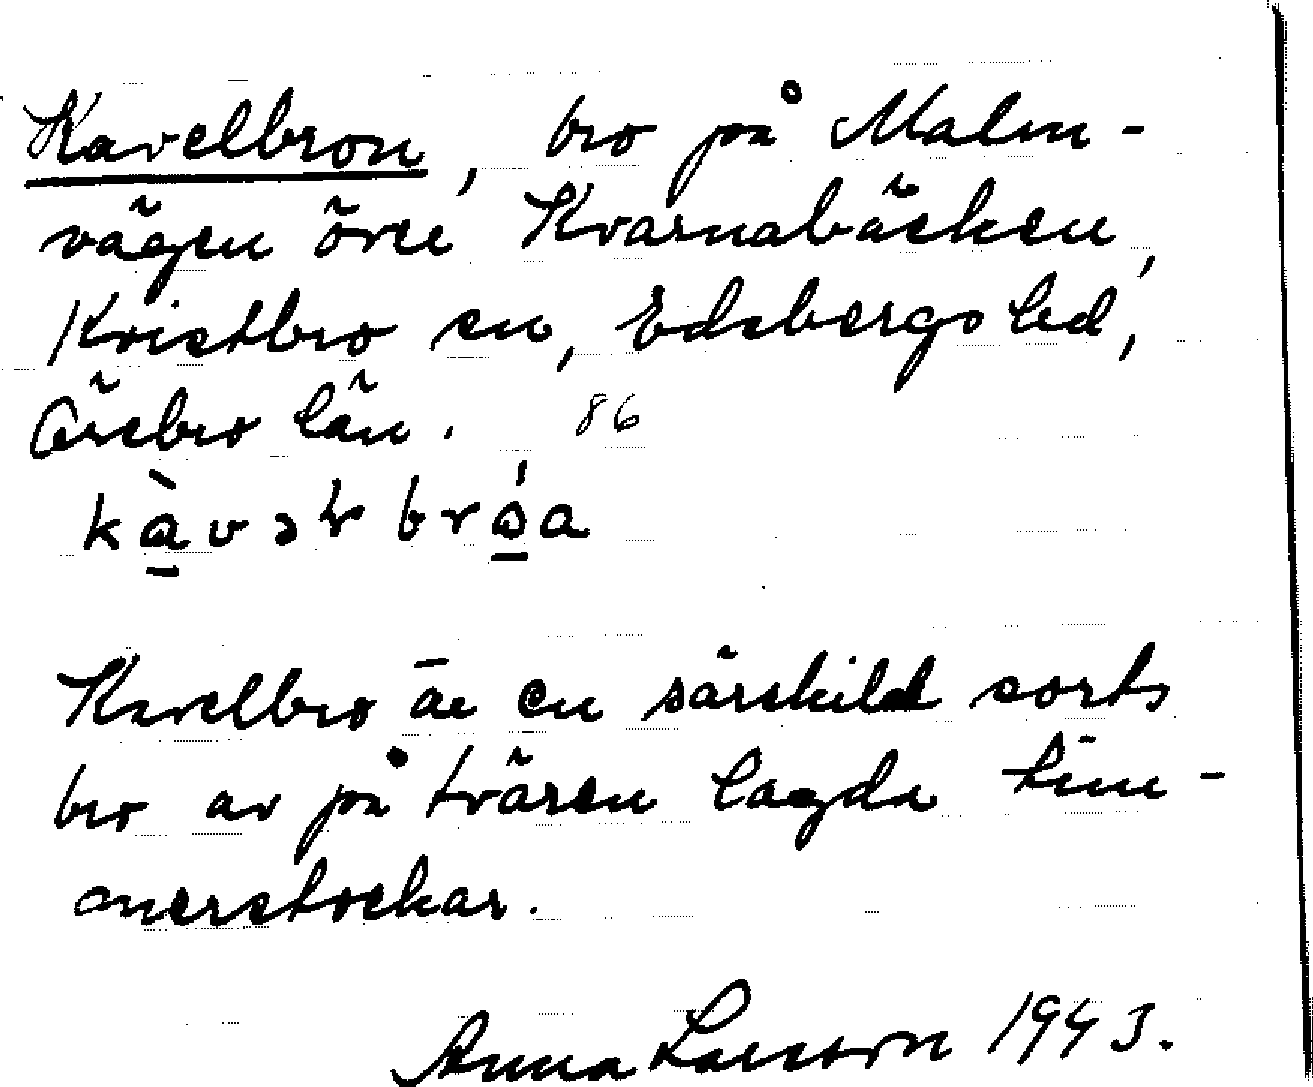 Kavelbron, bro på Malm-
vägen över Kvarnabäcken,
Kvistbro sn, Edsbergs hd,
Örebro län. 86
Kavelbro är en särskild sorts
bro av på tvären lagda tim-
merstockar.
Anna Larsson 1943.